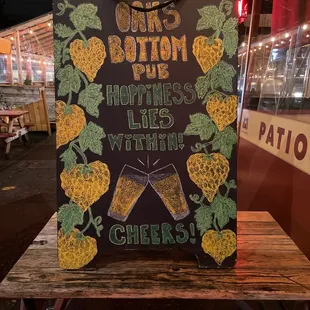 OAKS
BOTTOM
PUB
HOPPINESS
LIES
WITHIN!
CHEERS!
PATIO